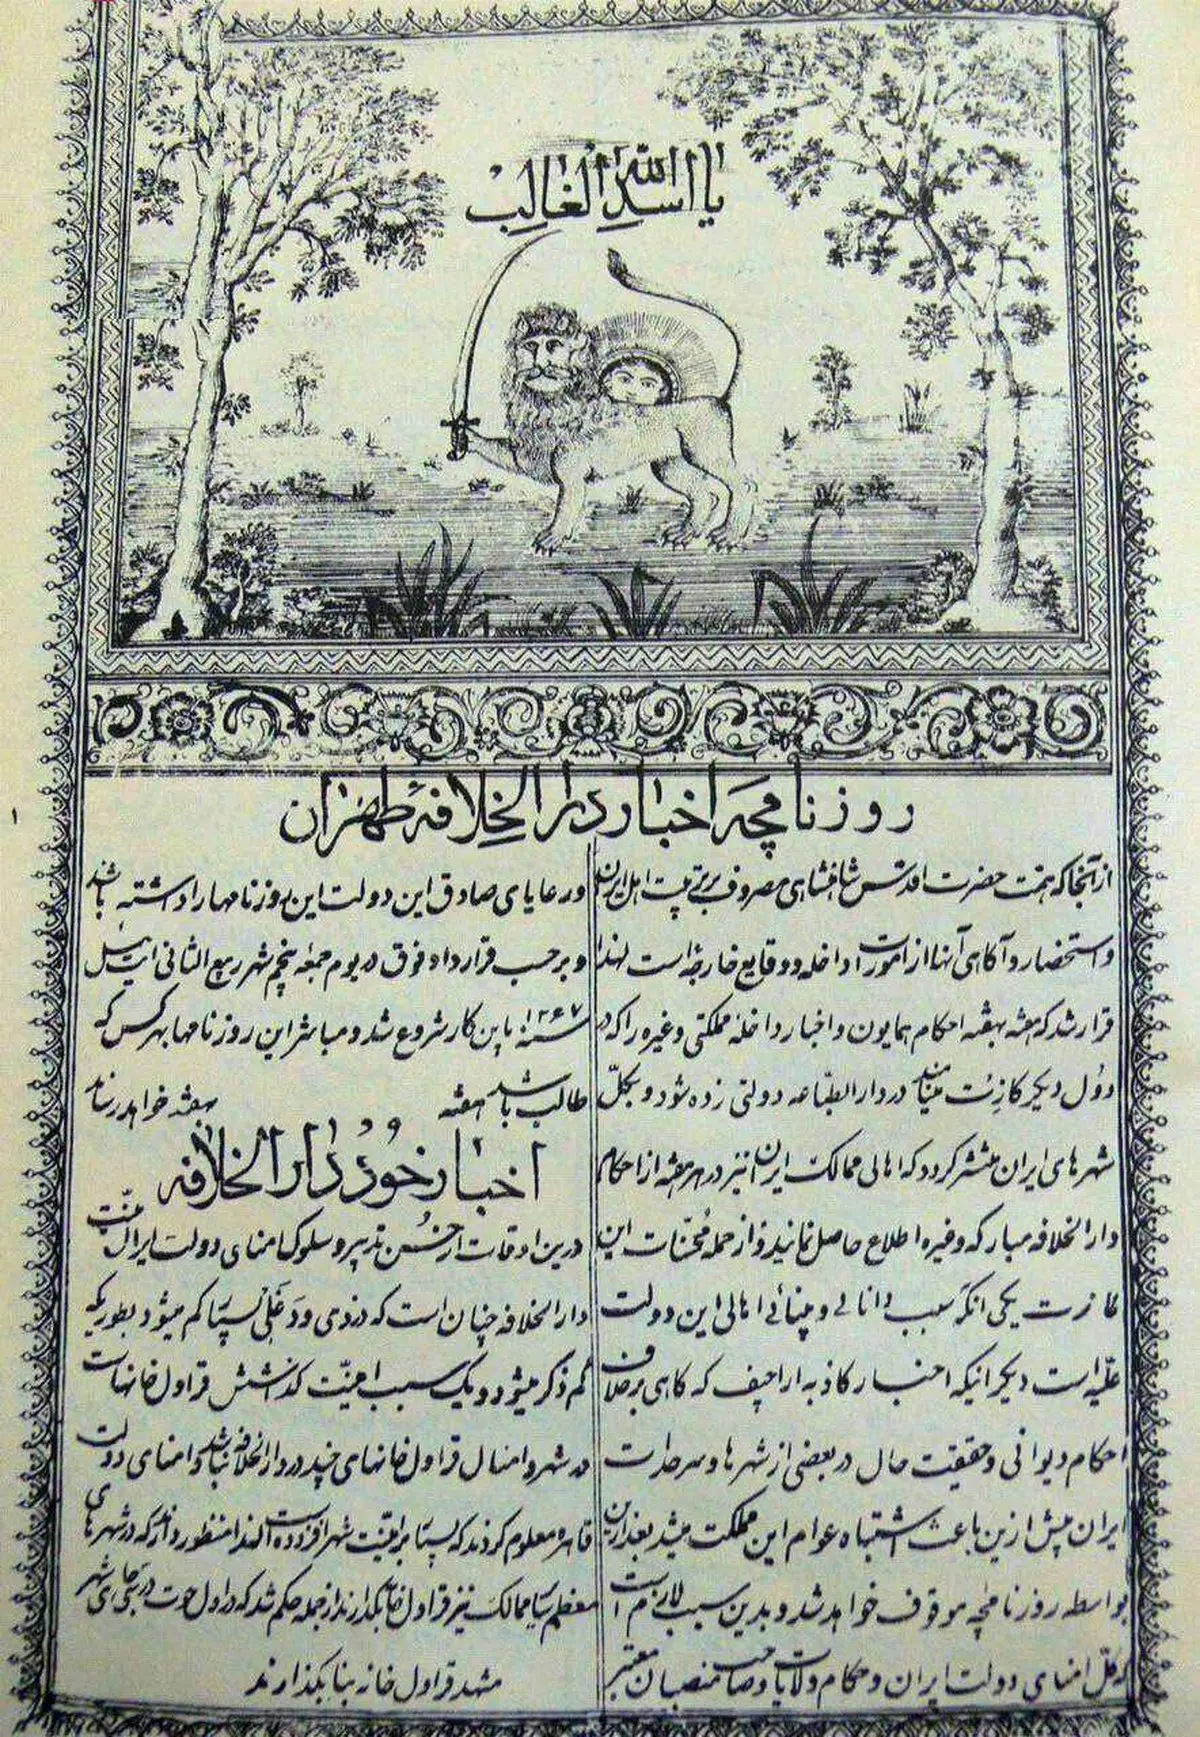 یا اسد الله الغالب
روزنامچه اخبار دار الخلافه طهران
از آنجا که همت حضرت اقدس شاهنشاهی مصروف بر تربیت اهل ایران
و استحضار و آگاهی آنها از امورات داخله و وقایع خارجه است لهذا
قرار شد که هفته بهفته احکام همایون و اخبار داخله مملکتی و غیره را که در
دول دیگر کازت مینامند در دار الطباعه دولتی زده شود و بکل
شهرهای ایران منتشر گردد که اهالی ممالک ایران نیز در هر هفته از احکام
دار الخلافه مبارکه و غیره اطلاع حاصل نمایند و از جمله محسنات این
کازت یکی آنکه سبب دانائی و بینائی اهالی این دولت
علیه است دیگر اینکه اخبار کاذبه اراجیف که گاهی بر خلاف
احکام دیوانی و حقیقت حال در بعضی از شهرها و سرحدات
ایران پیش ازین باعث اشتباه عوام این مملکت میشد بعد ازین
بواسطه روزنامچه موقوف خواهد شد و بدین سبب لازم است
که کل امنای دولت ایران و حکام ولایات و صاحب منصبان معتبر
و رعایای صادق این دولت این روزنامها را داشته باشند
و بر حسب قرارداد فوق در یوم جمعه پنجم شهر ربیع الثانی ایت ئیل
سنه ۱۲۶۷ باین کار شروع شد و مباشر این روزنامها بهر کس که
طالب باشد هفته بهفته خواهد رساند
اخبار خود دار الخلافه
درین اوقات از حسن تدبیر و سلوک امنای دولت ایران امنیت
دار الخلافه چنان است که دزدی و دغلی بسیار کم میشود بطوریکه
کم ذکر میشود و یک سبب امنیت گذاشتن قراول خانهاست
در شهر و امثال قراول خانهای چند در دار الخلافه بنا شد و امنای دولت
قاهره معلوم کردند که بسیار بر امنیت شهر افزوده است لهذا منظور دارند که در شهرهای
معظم سایر ممالک نیز قراول خانه بگذارند از جمله حکم شد که در اول حوت در جای شهر
مشهد قراول خانه بنا بگذارند
۱